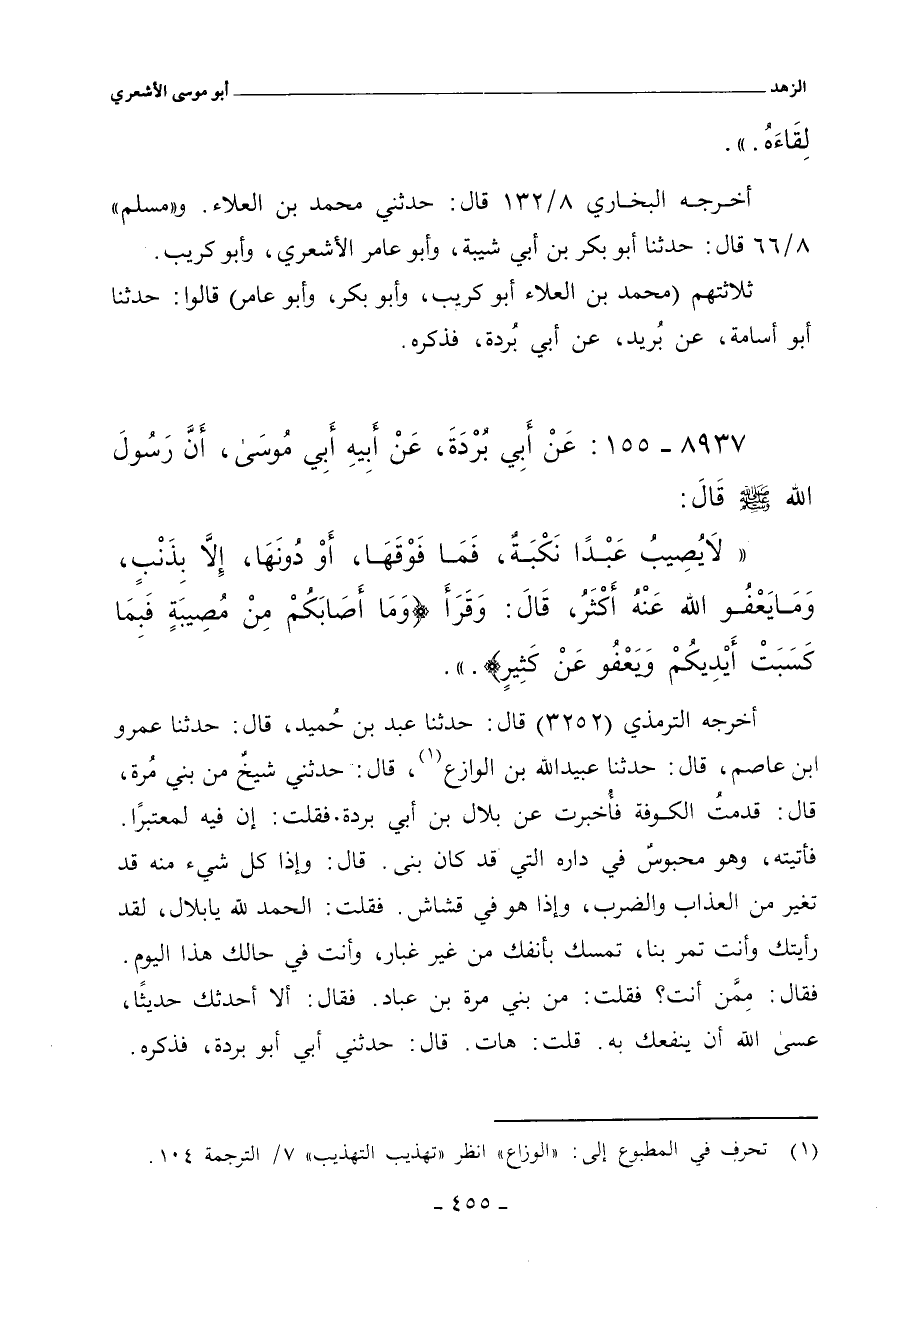 الزهد ــــــــــــــــــــ أبو موسى الأشعري
لِقَاءَهُ . » .
أخرجه البخاري ١٣٢/٨ قال : حدثني محمد بن العلاء . و«مسلم»
٦٦/٨ قال : حدثنا أبو بكر بن أبي شيبة ، وأبو عامر الأشعري ، وأبو كريب .
ثلاثتهم (محمد بن العلاء أبو كريب ، وأبو بكر ، وأبو عامر) قالوا : حدثنا
أبو أسامة ، عن بُريد ، عن أبي بُردة ، فذكره .
٨٩٣٧ ـ ١٥٥ : عَنْ أَبِي بُرْدَةَ ، عَنْ أَبِيهِ أَبِي مُوسَىٰ ، أَنَّ رَسُولَ
اللهِ ﷺ قَالَ :
« لَايُصِيبُ عَبْدًا نَكْبَةٌ ، فَمَا فَوْقَهَا ، أَوْ دُونَهَا ، إِلَّا بِذَنْبٍ ،
وَمَايَعْفُو الله عَنْهُ أَكْثَرُ ، قَالَ : وَقَرَأَ ﴿وَمَا أَصَابَكُمْ مِنْ مُصِيبَةٍ فَبِمَا
كَسَبَتْ أَيْدِيكُمْ وَيَعْفُو عَنْ كَثِيرٍ﴾ . » .
أخرجه الترمذي (٣٢٥٢) قال : حدثنا عبد بن حُميد ، قال : حدثنا عمرو
ابن عاصم ، قال : حدثنا عبيدالله بن الوازع(١) ، قال : حدثني شيخٌ من بني مُرة ،
قال : قدمتُ الكوفة فأُخبرت عن بلال بن أبي بردة . فقلت : إن فيه لمعتبرًا .
فأتيته ، وهو محبوسٌ في داره التي قد كان بنى . قال : وإذا كل شيء منه قد
تغير من العذاب والضرب ، وإذا هو في قشاش . فقلت : الحمد لله يابلال ، لقد
رأيتك وأنت تمر بنا ، تمسك بأنفك من غير غبار ، وأنت في حالك هذا اليوم .
فقال : مِمَّن أنت؟ فقلت : من بني مرة بن عباد . فقال : ألا أحدثك حديثًا ،
عسىٰ الله أن ينفعك به . قلت : هات . قال : حدثني أبي أبو بردة ، فذكره .
(١) تحرف في المطبوع إلى : «الوزاع» انظر «تهذيب التهذيب» ٧/ الترجمة ١٠٤ .
ـ ٤٥٥ ـ